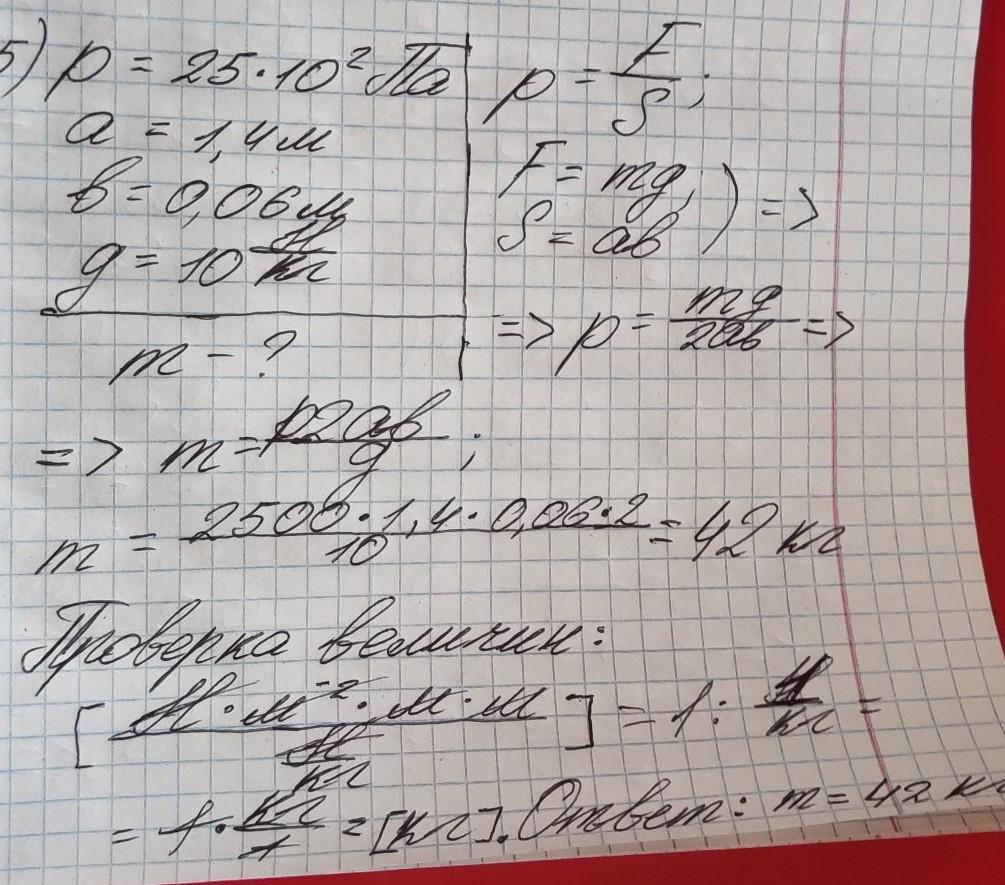 5) p = 25·10² Па
a = 1,4 м
b = 0,06 м
g = 10 Н/кг
m - ?
p = F/S;
F = mg;
S = ab ) =>
=> p = mg/2ab =>
=> m = p2ab/g ;
m = 2500·1,4·0,06·2/10 = 42 кг
Проверка величин:
[Н·м⁻²·м·м/Н/кг] = 1 : Н/кг =
= 1·кг/1 = [кг]. Ответ: m = 42 кг